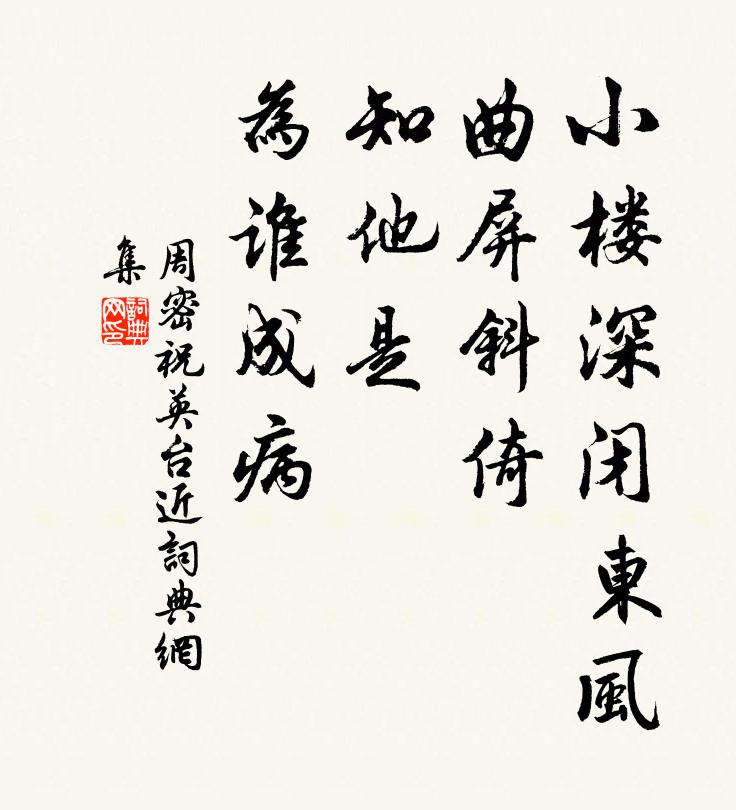 小楼深闭東風
曲屏斜倚
知他是
為谁成病
周密祝英台近詞典網
集
詞典网印